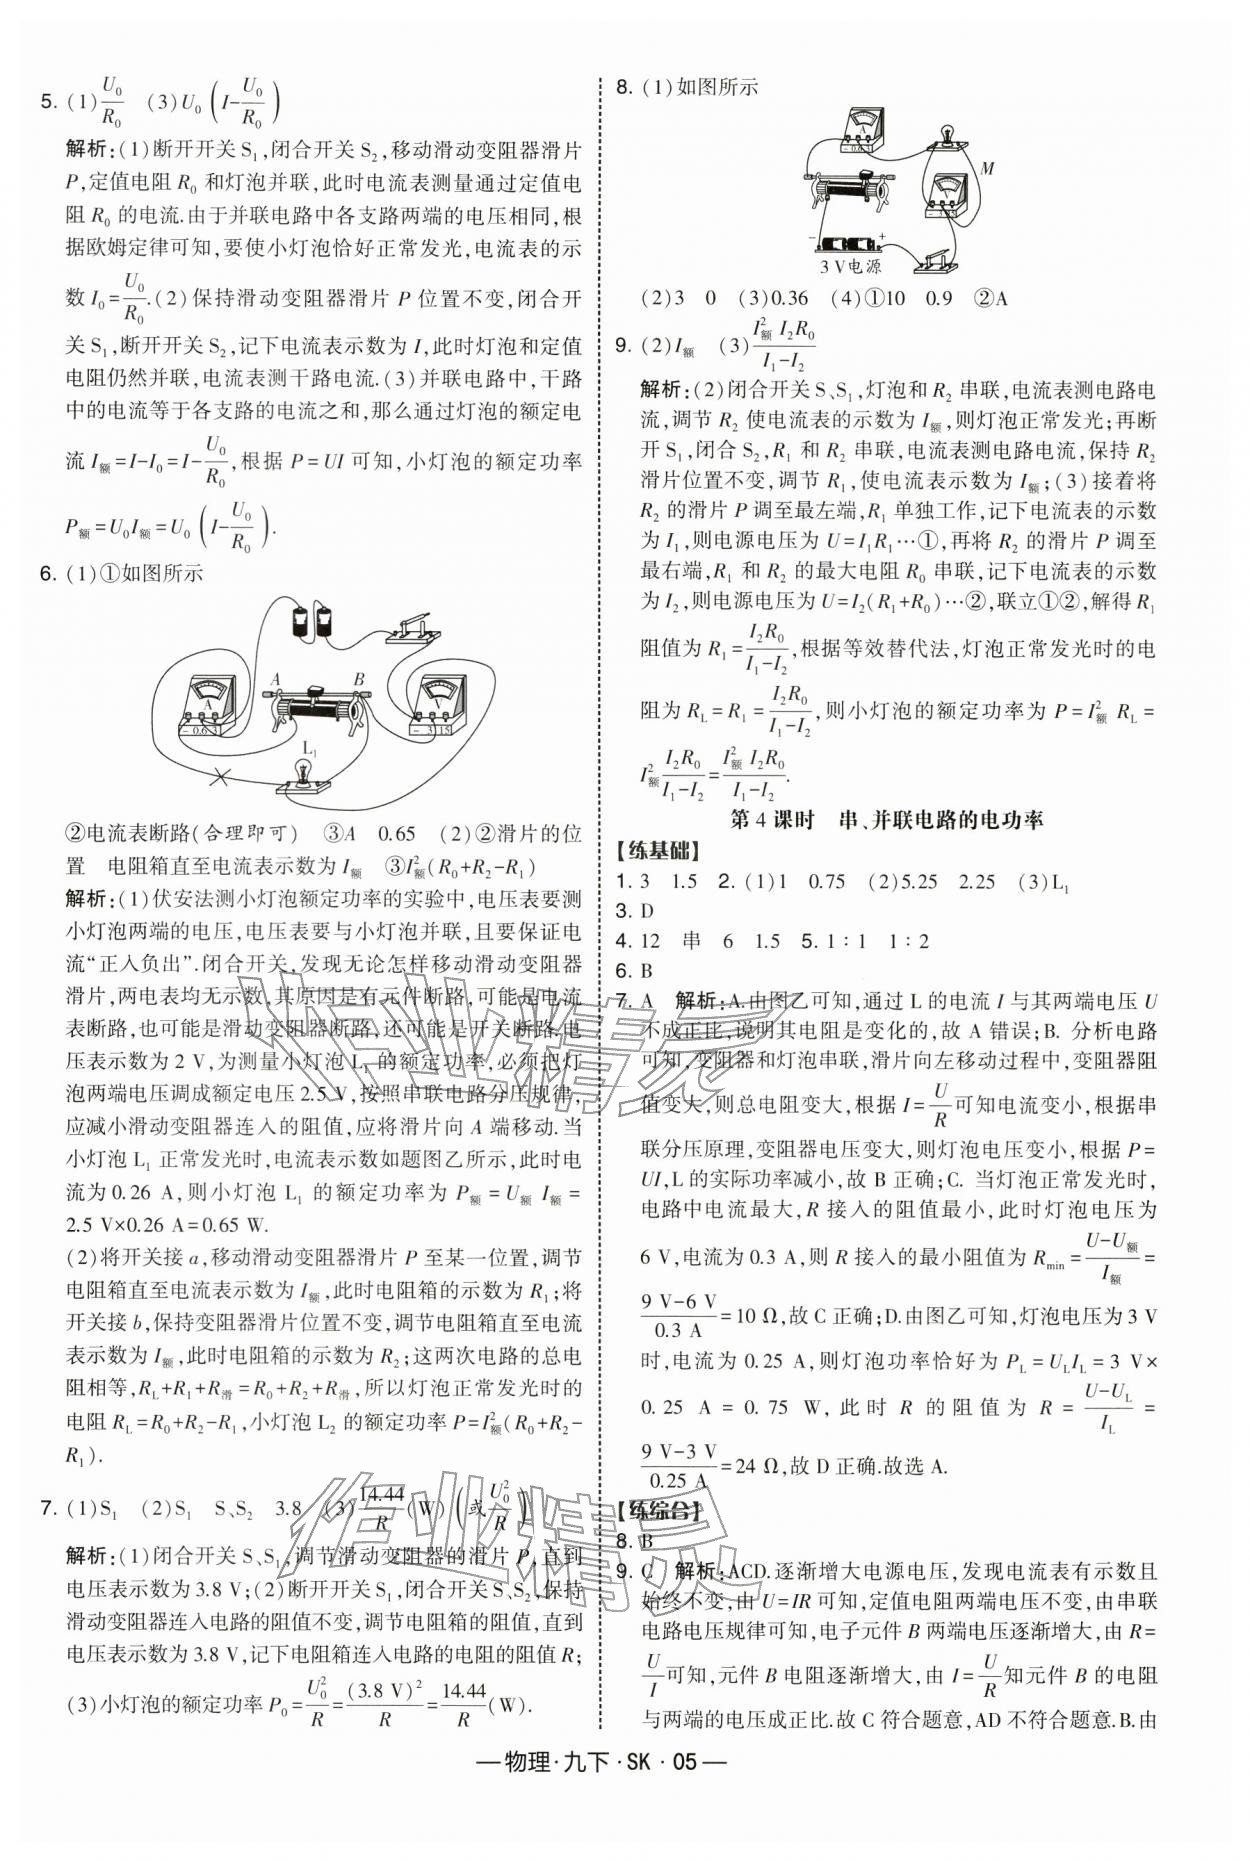 5. (1)U₀/R₀ (3)U₀(I-U₀/R₀)
解析:(1)断开开关S₁,闭合开关S₂,移动滑动变阻器滑片
P,定值电阻R₀和灯泡并联,此时电流表测量通过定值电
阻R₀的电流.由于并联电路中各支路两端的电压相同,根
据欧姆定律可知,要使小灯泡恰好正常发光,电流表的示
数I₀=U₀/R₀.(2)保持滑动变阻器滑片P位置不变,闭合开
关S₁,断开开关S₂,记下电流表示数为I,此时灯泡和定值
电阻仍然并联,电流表测干路电流.(3)并联电路中,干路
中的电流等于各支路的电流之和,那么通过灯泡的额定电
流I额=I-I₀=I-U₀/R₀,根据P=UI可知,小灯泡的额定功率
P额=U₀I额=U₀(I-U₀/R₀).
6. (1)①如图所示
A B
A
V
- 0.6 3
- 3 15
L₁
②电流表断路(合理即可) ③A 0.65 (2)②滑片的位
置 电阻箱直至电流表示数为I额 ③I²额(R₀+R₂-R₁)
解析:(1)伏安法测小灯泡额定功率的实验中,电压表要测
小灯泡两端的电压,电压表要与小灯泡并联,且要保证电
流“正入负出”.闭合开关,发现无论怎样移动滑动变阻器
滑片,两电表均无示数,其原因是有元件断路,可能是电流
表断路,也可能是滑动变阻器断路,还可能是开关断路.电
压表示数为2 V,为测量小灯泡L₁的额定功率,必须把灯
泡两端电压调成额定电压2.5 V,按照串联电路分压规律,
应减小滑动变阻器连入的阻值,应将滑片向A端移动.当
小灯泡L₁正常发光时,电流表示数如题图乙所示,此时电
流为0.26 A,则小灯泡L₁的额定功率为P额=U额I额=
2.5 V×0.26 A=0.65 W.
(2)将开关接a,移动滑动变阻器滑片P至某一位置,调节
电阻箱直至电流表示数为I额,此时电阻箱的示数为R₁;将
开关接b,保持变阻器滑片位置不变,调节电阻箱直至电流
表示数为I额,此时电阻箱的示数为R₂;这两次电路的总电
阻相等,R_L+R₁+R滑=R₀+R₂+R滑,所以灯泡正常发光时的
电阻R_L=R₀+R₂-R₁,小灯泡L₂的额定功率P=I²额(R₀+R₂-
R₁).
7. (1)S₁ (2)S₁ S、S₂ 3.8 (3)14.44/R(W)(或U₀²/R)
解析:(1)闭合开关S、S₁,调节滑动变阻器的滑片P,直到
电压表示数为3.8 V;(2)断开开关S₁,闭合开关S、S₂,保持
滑动变阻器连入电路的阻值不变,调节电阻箱的阻值,直到
电压表示数为3.8 V,记下电阻箱连入电路的电阻的阻值R;
(3)小灯泡的额定功率P₀=U₀²/R=(3.8 V)²/R=14.44/R(W).
8. (1)如图所示
A
- 0.6 3
M
V
- 3 15
- +
3 V电源
(2)3 0 (3)0.36 (4)①10 0.9 ②A
9. (2)I额 (3)I²额I₂R₀/(I₁-I₂)
解析:(2)闭合开关S、S₁,灯泡和R₂串联,电流表测电路电
流,调节R₂使电流表的示数为I额,则灯泡正常发光;再断
开S₁,闭合S₂,R₁和R₂串联,电流表测电路电流,保持R₂
滑片位置不变,调节R₁,使电流表示数为I额;(3)接着将
R₂的滑片P调至最左端,R₁单独工作,记下电流表的示数
为I₁,则电源电压为U=I₁R₁…①,再将R₂的滑片P调至
最右端,R₁和R₂的最大电阻R₀串联,记下电流表的示数
为I₂,则电源电压为U=I₂(R₁+R₀)…②,联立①②,解得R₁
阻值为R₁=I₂R₀/(I₁-I₂),根据等效替代法,灯泡正常发光时的电
阻为R_L=R₁=I₂R₀/(I₁-I₂),则小灯泡的额定功率为P=I²额R_L=
I²额I₂R₀/(I₁-I₂)=I²额I₂R₀/(I₁-I₂).
第4课时 串、并联电路的电功率
【练基础】
1. 3 1.5 2. (1)1 0.75 (2)5.25 2.25 (3)L₁
3. D
4. 12 串 6 1.5 5. 1∶1 1∶2
6. B
7. A 解析:A.由图乙可知,通过L的电流I与其两端电压U
不成正比,说明其电阻是变化的,故A错误;B. 分析电路
可知,变阻器和灯泡串联,滑片向左移动过程中,变阻器阻
值变大,则总电阻变大,根据I=U/R可知电流变小,根据串
联分压原理,变阻器电压变大,则灯泡电压变小,根据P=
UI,L的实际功率减小,故B正确;C. 当灯泡正常发光时,
电路中电流最大,R接入的阻值最小,此时灯泡电压为
6 V,电流为0.3 A,则R接入的最小阻值为R_min=(U-U额)/I额=
(9 V-6 V)/0.3 A=10 Ω,故C正确;D.由图乙可知,灯泡电压为3 V
时,电流为0.25 A,则灯泡功率恰好为P_L=U_LI_L=3 V×
0.25 A=0.75 W,此时R的阻值为R=(U-U_L)/I_L=
(9 V-3 V)/0.25 A=24 Ω,故D正确.故选A.
【练综合】
8. B
9. C 解析:ACD.逐渐增大电源电压,发现电流表有示数且
始终不变,由U=IR可知,定值电阻两端电压不变,由串联
电路电压规律可知,电子元件B两端电压逐渐增大,由R=
U/I可知,元件B电阻逐渐增大,由I=U/R知元件B的电阻
与两端的电压成正比.故C符合题意,AD不符合题意.B.由
作业精灵
作业精灵
—物理·九下·SK·05—